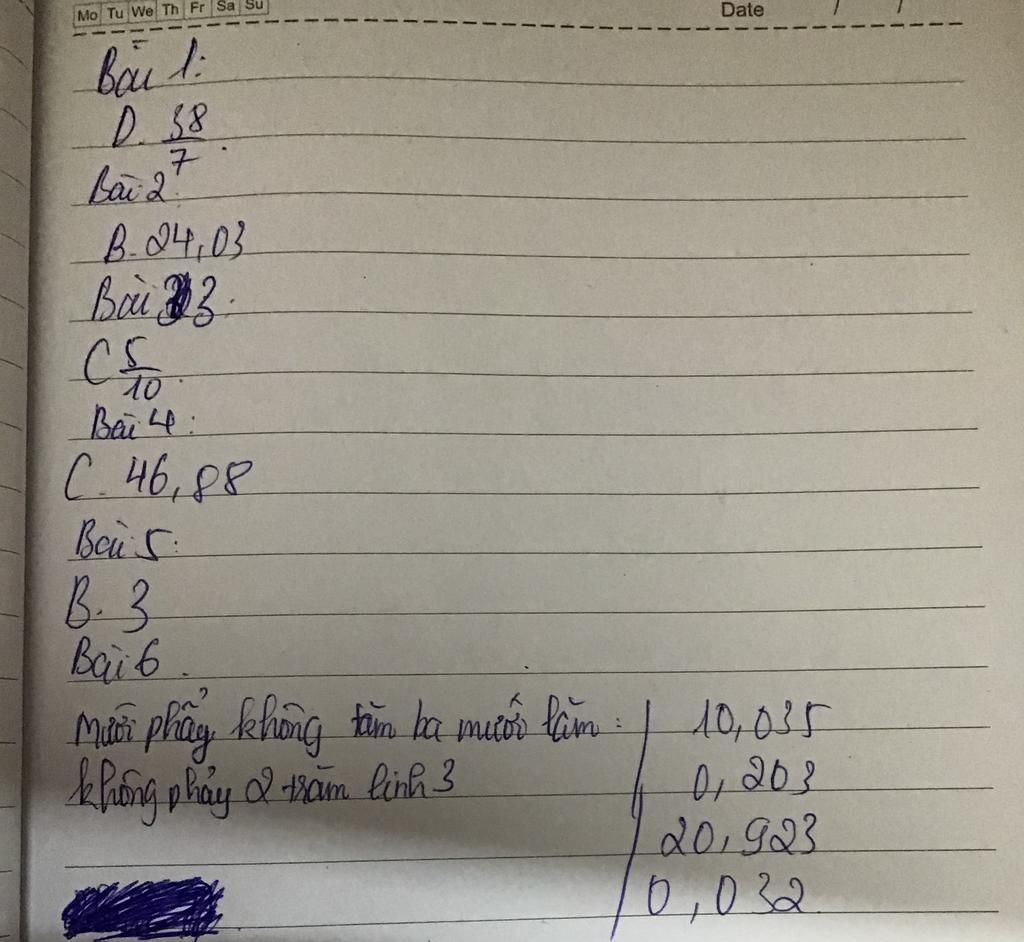 Mo Tu We Th Fr Sa Su Date / /
Bài 1:
D. 38/7.
Bài 2:
B. 24,03
Bài 3:
C 5/10.
Bài 4:
C. 46,88
Bài 5:
B. 3
Bài 6.
Mười phẩy không trăm ba mươi lăm: 10,035
không phảy 2 trăm linh 3 0,203
20,923
0,032